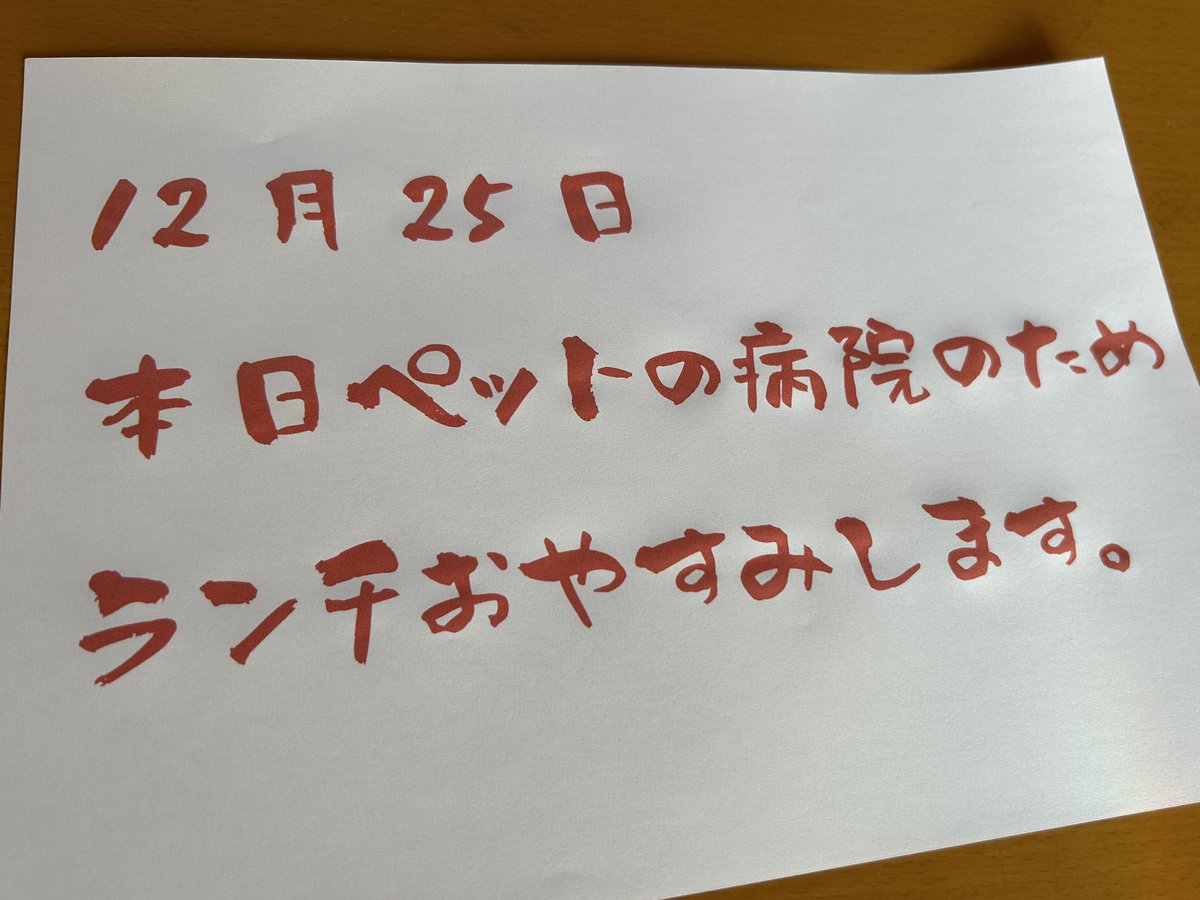 12月25日
本日ペットの病院のため
ランチおやすみします。